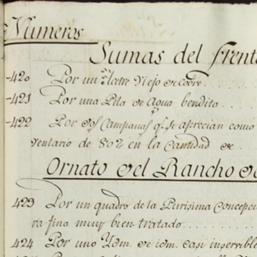 Numeros
Sumas del frent
420 Por un Platto Viejo de Cobre
421 Por una Pila de Agua bendita
422 Por dos Campanas qe. se aprecian como
ventario de 802 en la Cantidad de
Ornato del Rancho de
423 Por un quadro de la Purisima Concepci
ra fina muy bien tratado
424 Por uno Ydm. de idm. casi inserrible